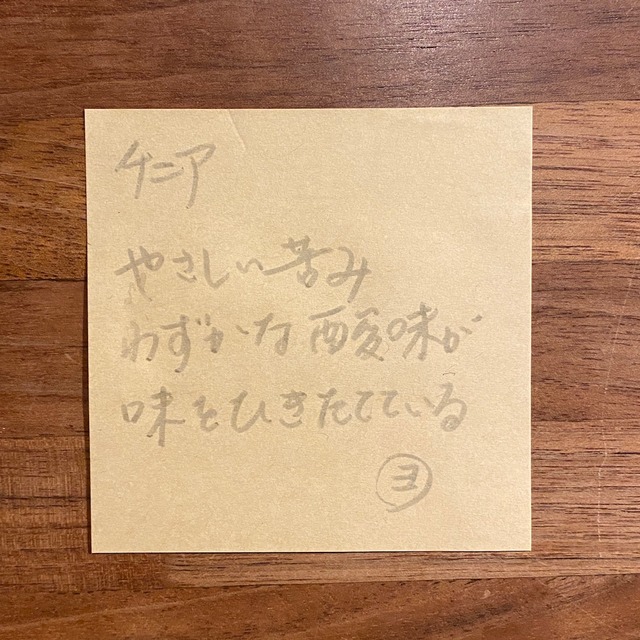 ケニア
やさしい苦み
わずかな酸味が
味をひきたてている
ヨ